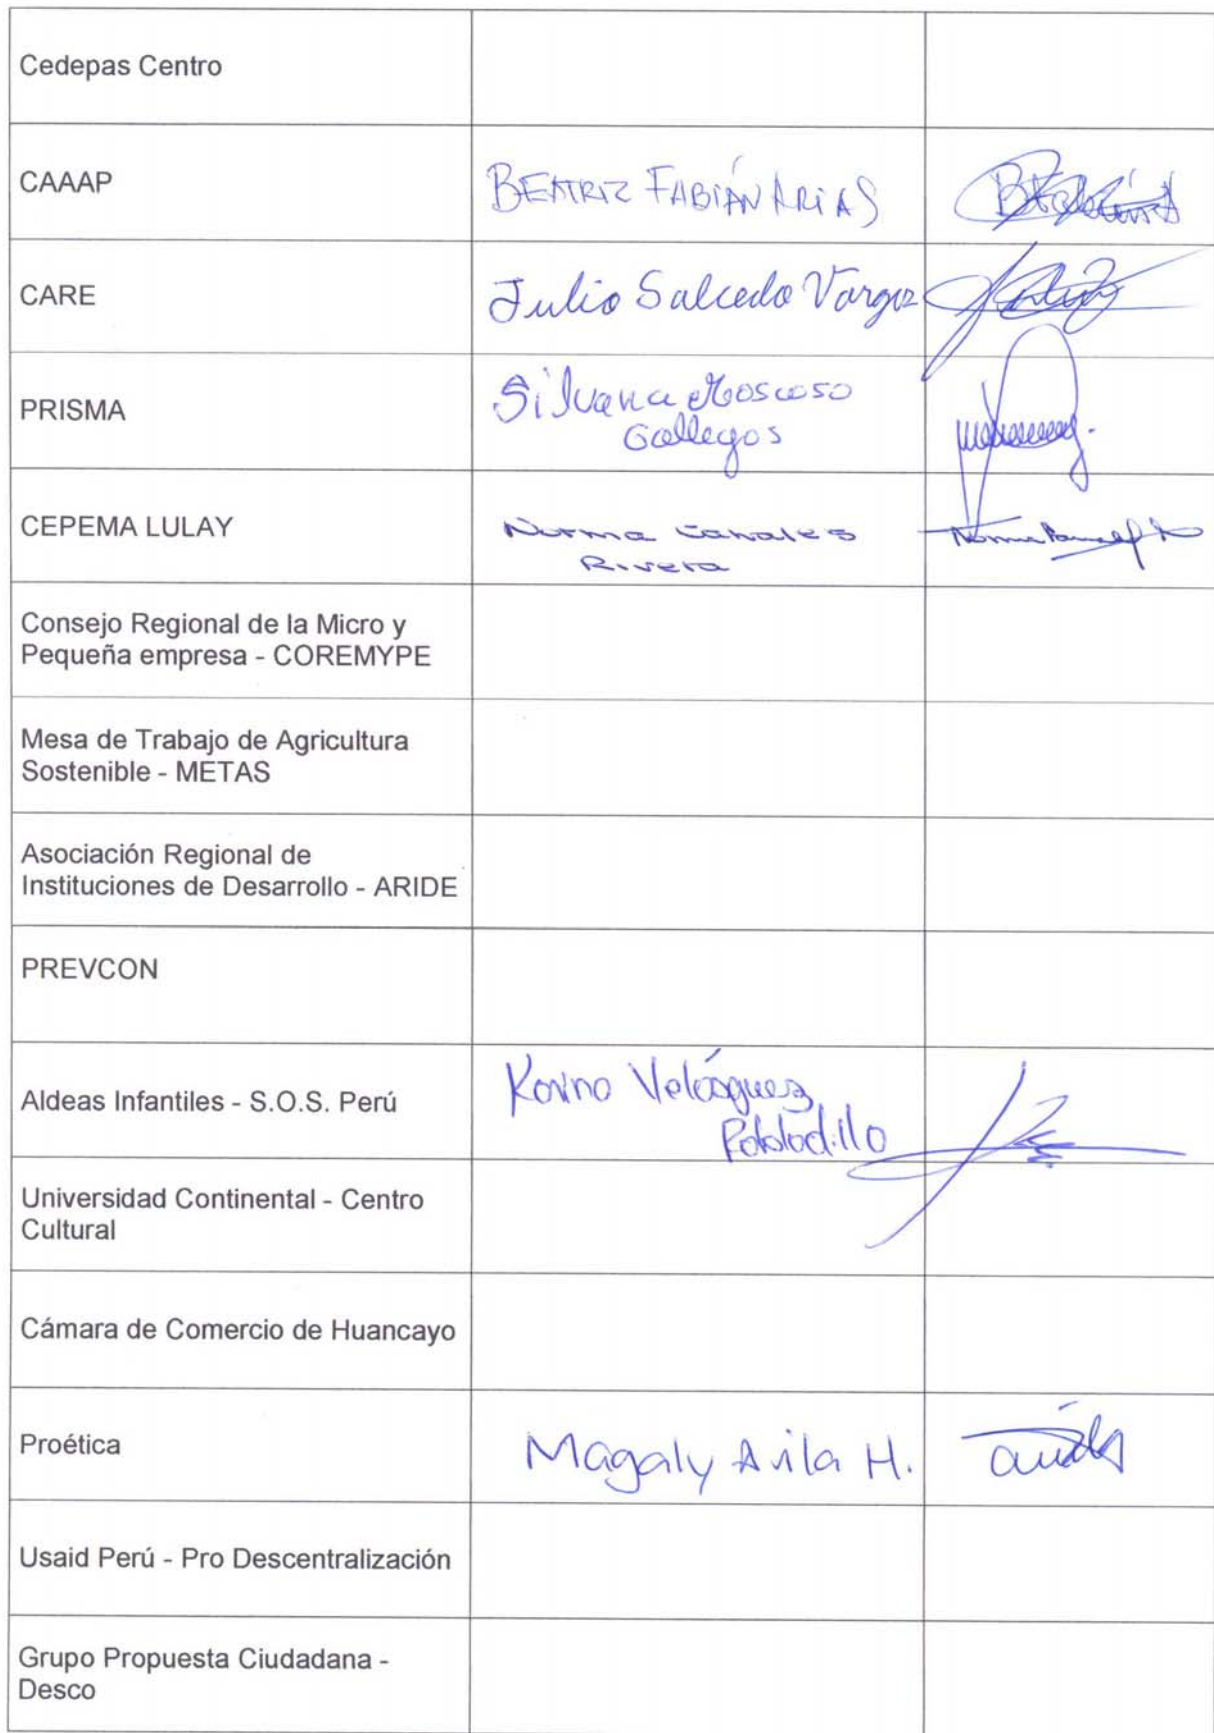 Cedepas Centro
CAAAP BEATRIZ FABIÁN ARIAS
CARE Julio Salcedo Vargas
PRISMA Silvana Moscoso
Gallegos
CEPEMA LULAY Norma Canales
Rivera
Consejo Regional de la Micro y
Pequeña empresa - COREMYPE
Mesa de Trabajo de Agricultura
Sostenible - METAS
Asociación Regional de
Instituciones de Desarrollo - ARIDE
PREVCON
Aldeas Infantiles - S.O.S. Perú Karina Velásquez
Pobladillo
Universidad Continental - Centro
Cultural
Cámara de Comercio de Huancayo
Proética Magaly Avila H.
Usaid Perú - Pro Descentralización
Grupo Propuesta Ciudadana -
Desco